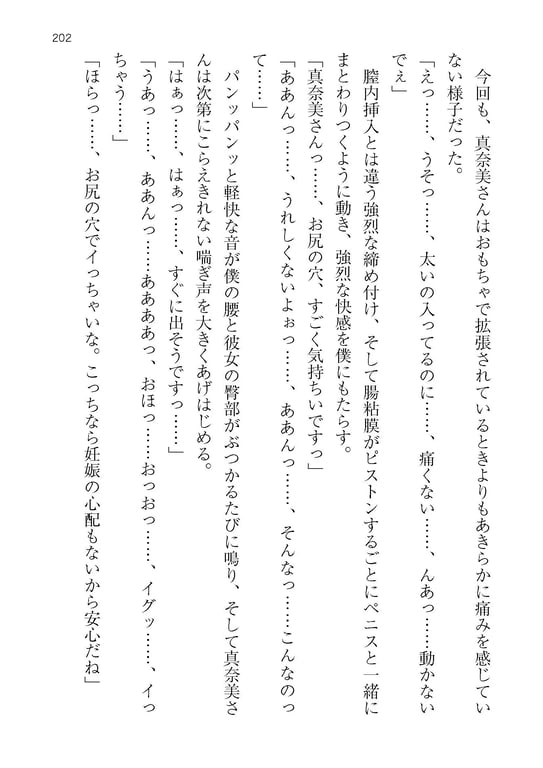 202
今回も、真奈美さんはおもちゃで拡張されているときよりもあきらかに痛みを感じてい
ない様子だった。
「えっ……、うそっ……、太いの入ってるのに……、痛くない……、んあっ……動かない
でぇ」
膣内挿入とは違う強烈な締め付け、そして腸粘膜がピストンするごとにペニスと一緒に
まとわりつくように動き、強烈な快感を僕にもたらす。
「真奈美さんっ……、お尻の穴、すごく気持ちいですっ」
「ああんっ……、うれしくないよぉっ……、ああんっ……、そんなっ……こんなのっ
て……」
パンッパンッと軽快な音が僕の腰と彼女の臀部がぶつかるたびに鳴り、そして真奈美さ
んは次第にこらえきれない喘ぎ声を大きくあげはじめる。
「はぁっ……、はぁっ……、すぐに出そうですっ……」
「うあっ……、ああんっ……ああああっ、おほっ……おっおっ……、イグッ……、イっ
ちゃう……」
「ほらっ……、お尻の穴でイっちゃいな。こっちなら妊娠の心配もないから安心だね」